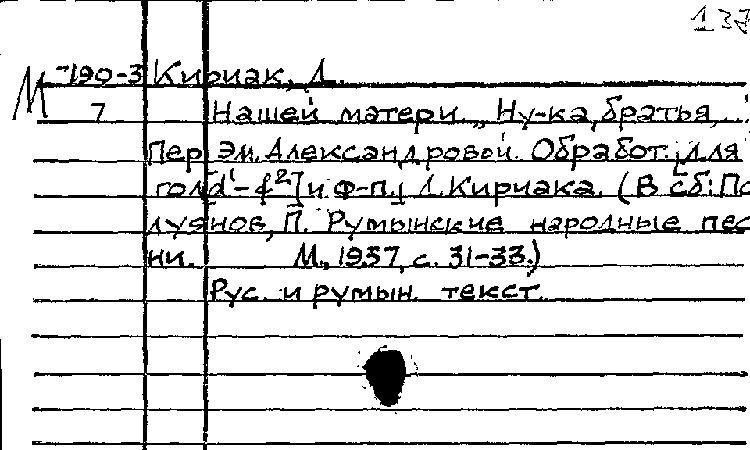 137
М -190-3 Кириак, Л.
7 Нашей матери. „Ну-ка, братья, ..
Пер. Эм. Александровой. Обработ. для
гол[d¹-f²] и ф-п. Л. Кириака. (В сб: По
луянов, П. Румынские народные пес
ни. М., 1957, с. 31-33.)
Рус. и румын. текст.